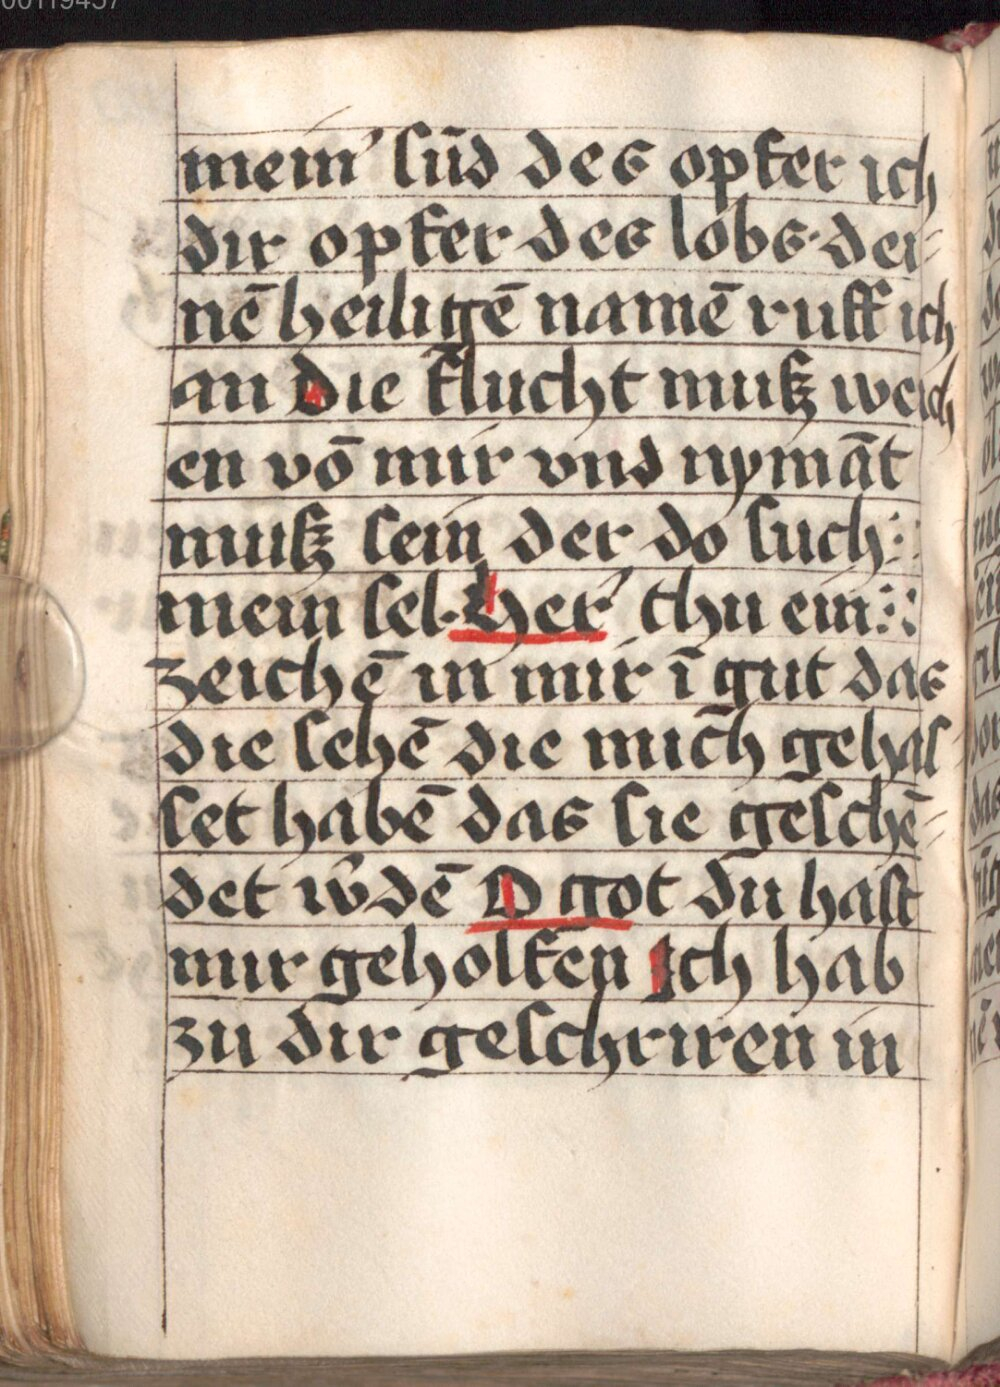 00119457
mein' sūd des opfer ich
dir opfer des lobs · dei-
nē heiligē namē ruff ich
an Die flucht muß weich
en vō mir vnd nymāt
muß sein der do such :
mein sel · Her' thu ein :
zeichē in mir ī gut das
die sehē die mich gehas
set habē das sie geschē-
det w'dē O got du hast
mir geholfen Ich hab
zu dir geschriren in